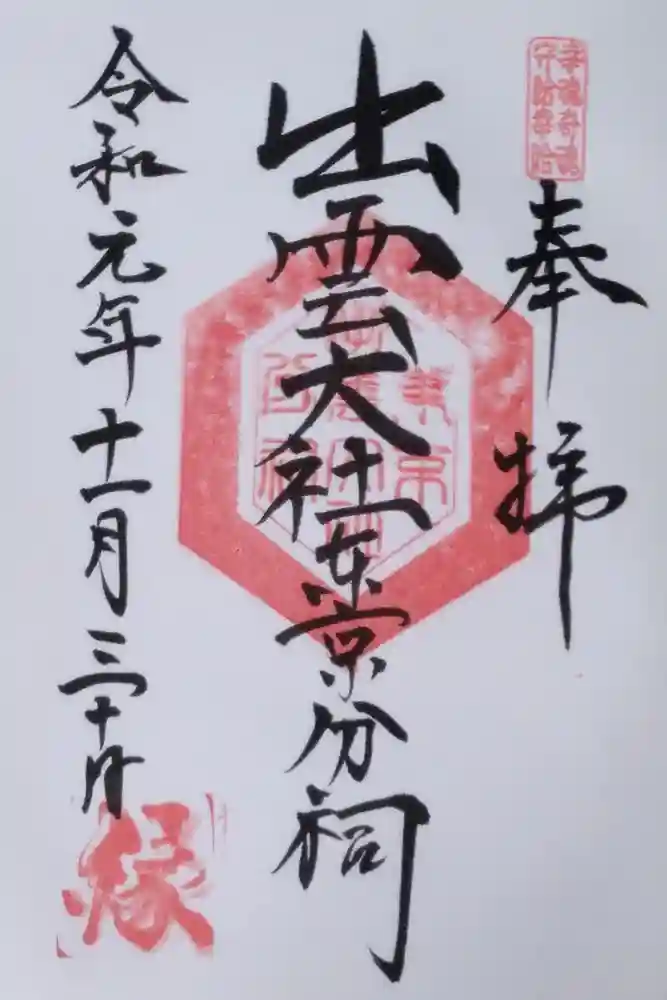 奉拝
出雲大社東京分祠
令和元年十一月三十日
縁